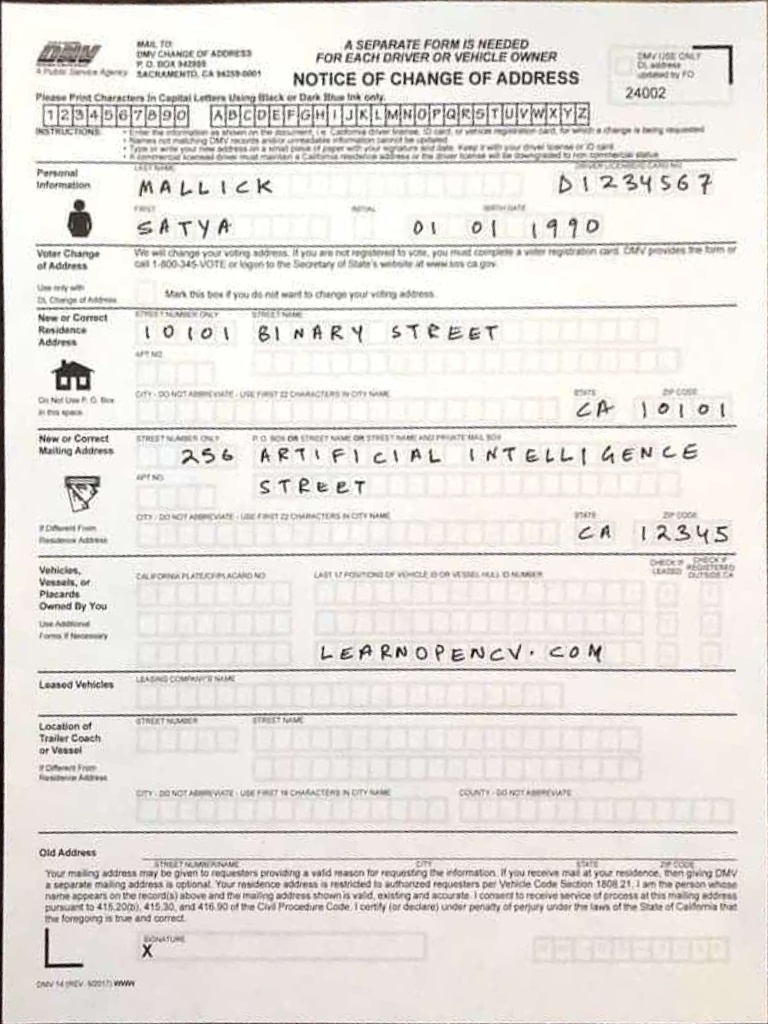 DMV
A Public Service Agency
MAIL TO:
DMV CHANGE OF ADDRESS
P. O. BOX 942859
SACRAMENTO, CA 94259-0001
A SEPARATE FORM IS NEEDED
FOR EACH DRIVER OR VEHICLE OWNER
NOTICE OF CHANGE OF ADDRESS
DMV USE ONLY
DL address
updated by FO
24002
Please Print Characters In Capital Letters Using Black or Dark Blue Ink only.
1 2 3 4 5 6 7 8 9 0 A B C D E F G H I J K L M N O P Q R S T U V W X Y Z
INSTRUCTIONS:
• Enter the information as shown on the document, i.e. California driver license, ID card, or vehicle registration card, for which a change is being requested
• Names not matching DMV records and/or unreadable information cannot be updated.
• Type or write your new address on a small piece of paper with your signature and date. Keep it with your driver license or ID card.
• A commercial licensed driver must maintain a California residence address or the driver license will be downgraded to non commercial status.
Personal
Information
LAST NAME
DRIVER LICENSE/ID CARD NO
MALLICK D1234567
FIRST INITIAL BIRTH DATE
SATYA 01 01 1990
Voter Change
of Address
We will change your voting address. If you are not registered to vote, you must complete a voter registration card. DMV provides the form or
call 1-800-345-VOTE or logon to the Secretary of State's website at www.sos.ca.gov.
Use only with
DL Change of Address
Mark this box if you do not want to change your voting address.
New or Correct
Residence
Address
STREET NUMBER ONLY STREET NAME
10101 BINARY STREET
APT NO.
Do Not Use P. O. Box
in this space
CITY - DO NOT ABBREVIATE - USE FIRST 22 CHARACTERS IN CITY NAME STATE ZIP CODE
CA 10101
New or Correct
Mailing Address
STREET NUMBER ONLY P. O. BOX OR STREET NAME OR STREET NAME AND PRIVATE MAIL BOX
256 ARTIFICIAL INTELLIGENCE
APT NO.
STREET
If Different From
Residence Address
CITY - DO NOT ABBREVIATE - USE FIRST 22 CHARACTERS IN CITY NAME STATE ZIP CODE
CA 12345
Vehicles,
Vessels, or
Placards
Owned By You
Use Additional
Forms If Necessary
CALIFORNIA PLATE/CF/PLACARD NO. LAST 17 POSITIONS OF VEHICLE ID OR VESSEL HULL ID NUMBER
CHECK IF
LEASED
CHECK IF
REGISTERED
OUTSIDE CA
LEARNOPENCV.COM
Leased Vehicles
LEASING COMPANY'S NAME
Location of
Trailer Coach
or Vessel
If Different From
Residence Address
STREET NUMBER STREET NAME
CITY - DO NOT ABBREVIATE - USE FIRST 18 CHARACTERS IN CITY NAME COUNTY - DO NOT ABBREVIATE
Old Address
STREET NUMBER/NAME CITY STATE ZIP CODE
Your mailing address may be given to requesters providing a valid reason for requesting the information. If you receive mail at your residence, then giving DMV
a separate mailing address is optional. Your residence address is restricted to authorized requesters per Vehicle Code Section 1808.21. I am the person whose
name appears on the record(s) above and the mailing address shown is valid, existing and accurate. I consent to receive service of process at this mailing address
pursuant to 415.20(b), 415.30, and 416.90 of the Civil Procedure Code. I certify (or declare) under penalty of perjury under the laws of the State of California that
the foregoing is true and correct.
SIGNATURE
X
DMV 14 (REV. 5/2017) WWW